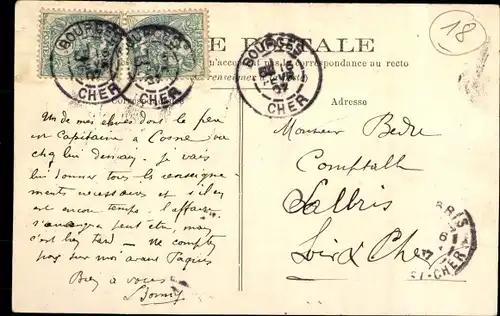 18
BOURGES
CHER
BOURGES
CHER
BOURGES
CHER
E POSTALE
pas la correspondance au recto
Adresse
Un de mes élèves dont le père
est Capitaine à Cosne va
chez lui demain. Je vais
lui donner tous les renseigne-
ments nécessaires et s'il en
est encore temps, l'affaire
s'arrangera peut être, mais
c'est bien tard — ne compte
pas sur moi avant Pâques
Bien à vous
Monsieur Bedu
Comptable
Salbris
Loir & Cher
BRIS
ET-CHER